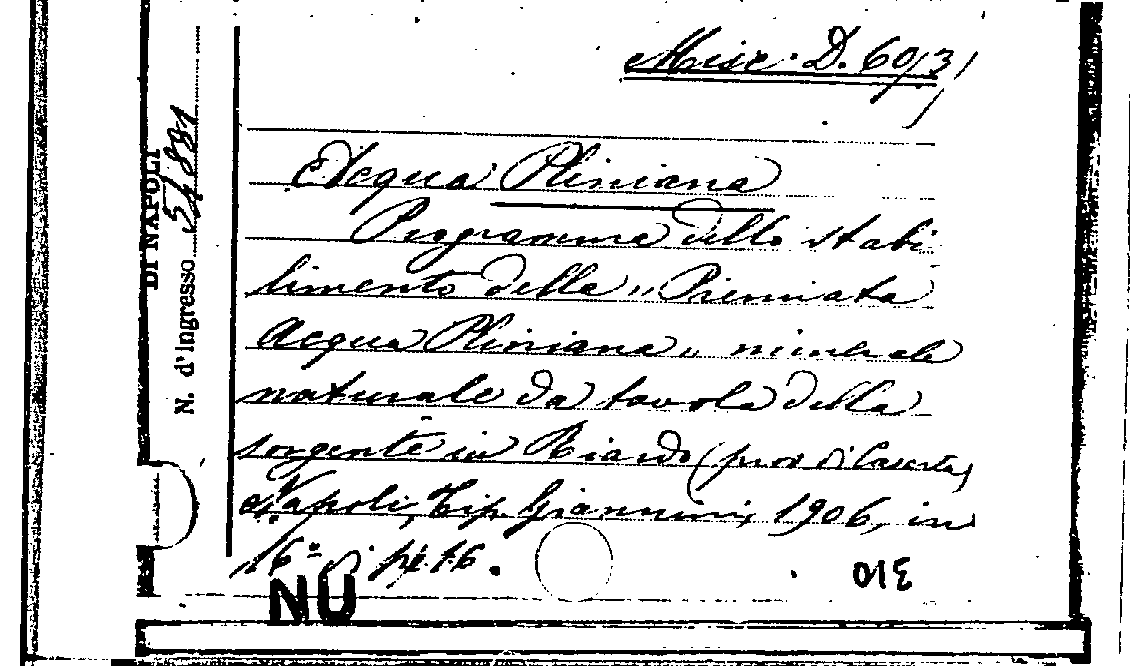 Misc. D. 60/3/
DI NAPOLI
N. d'Ingresso 54881
Acqua Pliniana
Programma dello stabi
limento della "Premiata
Acqua Pliniana" minerale
naturale da tavola della
sorgente in Riardo (prov di Caserta)
Napoli, Tip. Giannini, 1906, in
16º di pp. 16.
NU
310